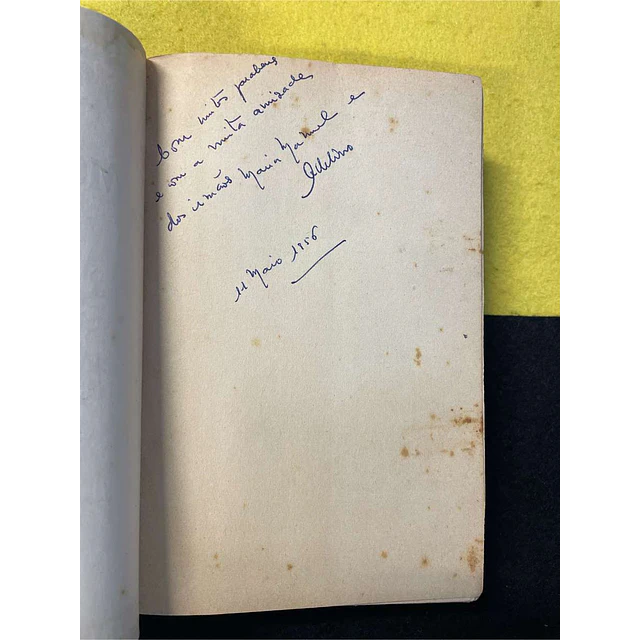 Com muitos parabens
e com a muita amizade
dos irmãos Maria Manuel e
Adelino
11 Maio 1956